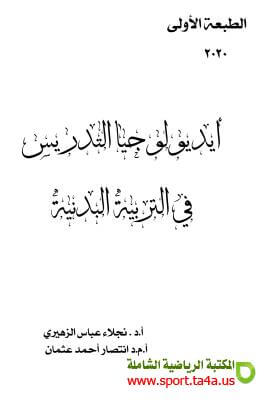 الطبعة الأولى
٢٠٢٠
أيديولوجيا التدريس
في التربية البدنية
أ.د. نجلاء عباس الزهيري
أ.م.د انتصار أحمد عثمان
المكتبة الرياضية الشاملة
www.sport.ta4a.us